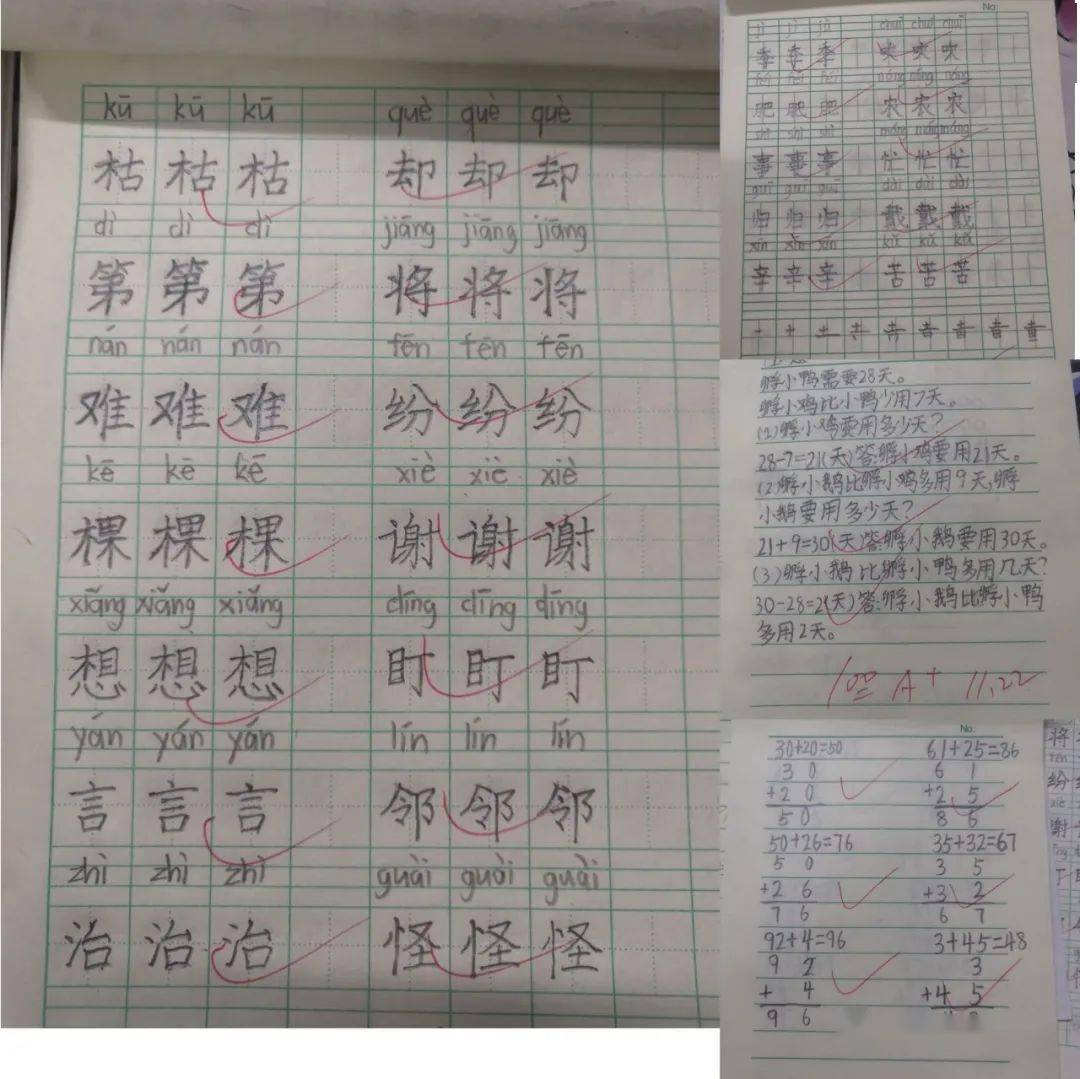 kū kū kū què què què
枯 枯 枯 却 却 却
dì dì dì jiāng jiāng jiāng
第 第 第 将 将 将
nán nán nán fēn fēn fēn
难 难 难 纷 纷 纷
kē kē kē xiè xiè xiè
棵 棵 棵 谢 谢 谢
xiǎng xiǎng xiǎng dīng dīng dīng
想 想 想 盯 盯 盯
yán yán yán lín lín lín
言 言 言 邻 邻 邻
zhì zhì zhì guài guài guài
治 治 治 怪 怪 怪
No:
jì jì jì chuī chuī chuī
季 季 季 吹 吹 吹
féi féi féi nóng nóng nóng
肥 肥 肥 农 农 农
shì shì shì máng máng máng
事 事 事 忙 忙 忙
guī guī guī dài dài dài
归 归 归 戴 戴 戴
xīn xīn xīn kǔ kǔ kǔ
辛 辛 辛 苦 苦 苦
孵小鸭需要28天。
孵小鸡比小鸭少用7天。
(1)孵小鸡要用多少天?
28-7=21(天)答:孵小鸡要用21天。
(2)孵小鹅比孵小鸡多用9天,孵
小鹅要用多少天?
21+9=30(天)答:孵小鹅要用30天。
(3)孵小鹅比孵小鸭多用几天?
30-28=2(天)答:孵小鹅比孵小鸭
多用2天。
100 A+ 11.22
No:
30+20=50 61+25=86
3 0 6 1
+2 0 +2 5
5 0 8 6
50+26=76 35+32=67
5 0 3 5
+2 6 +3 2
7 6 6 7
92+4=96 3+45=48
9 2 3
+ 4 +4 5
9 6
将
fēn
纷
xiè
谢